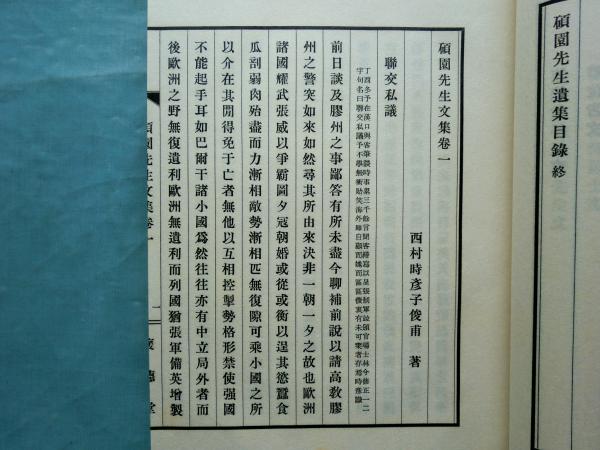 碩園先生遺集目錄 終
碩園先生文集卷一
西村時彥子俊甫 著
聯交私議
丁酉冬予在漢口與客筆談時事累三千餘言聞客
字句名曰聯交私議予不學無術
前日談及膠州之事鄙答有所未盡今聊補前說以請高敎膠
州之警突如來如然尋其所由來決非一朝一夕之故也歐洲
諸國耀武張威以爭霸圖夕冠朝婚或從或衡以逞其慾蠶食
瓜剖弱肉殆盡而力漸相敵勢漸相匹無復隙可乘小國之所
以介在其間得免于亡者無他以互相控掣勢格形禁使强國
不能起手耳如巴爾干諸小國爲然往往亦有中立局外者而
後歐洲之野無復遺利歐洲無遺利而列國猶張軍備英增製
碩園先生文集卷一
一
懷德堂